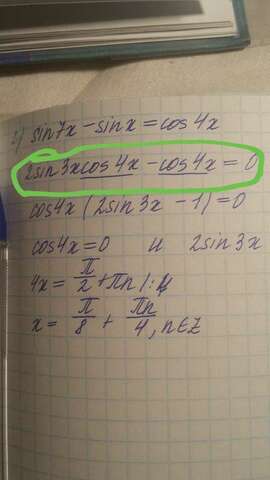 2) sin7x - sinx = cos4x
2sin3xcos4x - cos4x = 0
cos4x (2sin3x - 1) = 0
cos4x = 0 и 2sin3x
4x = π/2 + πn /:4
x = π/8 + πn/4, n∈Z